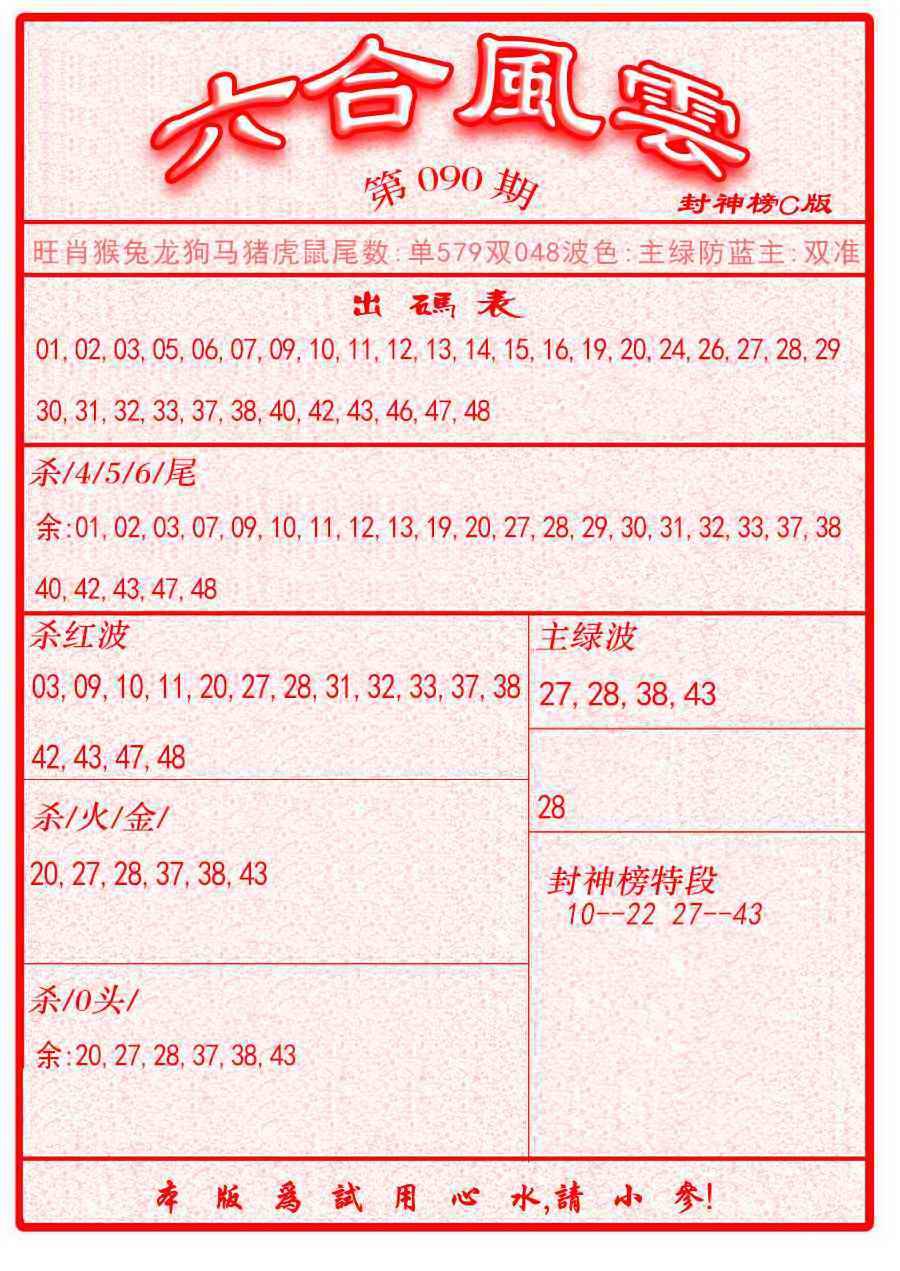 六合風雲
第090期
封神榜C版
旺肖猴兔龙狗马猪虎鼠尾数:单579双048波色:主绿防蓝主:双准
出碼表
01,02,03,05,06,07,09,10,11,12,13,14,15,16,19,20,24,26,27,28,29
30,31,32,33,37,38,40,42,43,46,47,48
杀/4/5/6/尾
余:01,02,03,07,09,10,11,12,13,19,20,27,28,29,30,31,32,33,37,38
40,42,43,47,48
杀红波
03,09,10,11,20,27,28,31,32,33,37,38
42,43,47,48
主绿波
27,28,38,43
28
杀/火/金/
20,27,28,37,38,43
封神榜特段
10--22 27--43
杀/0头/
余:20,27,28,37,38,43
本版爲試用心水,請小參!